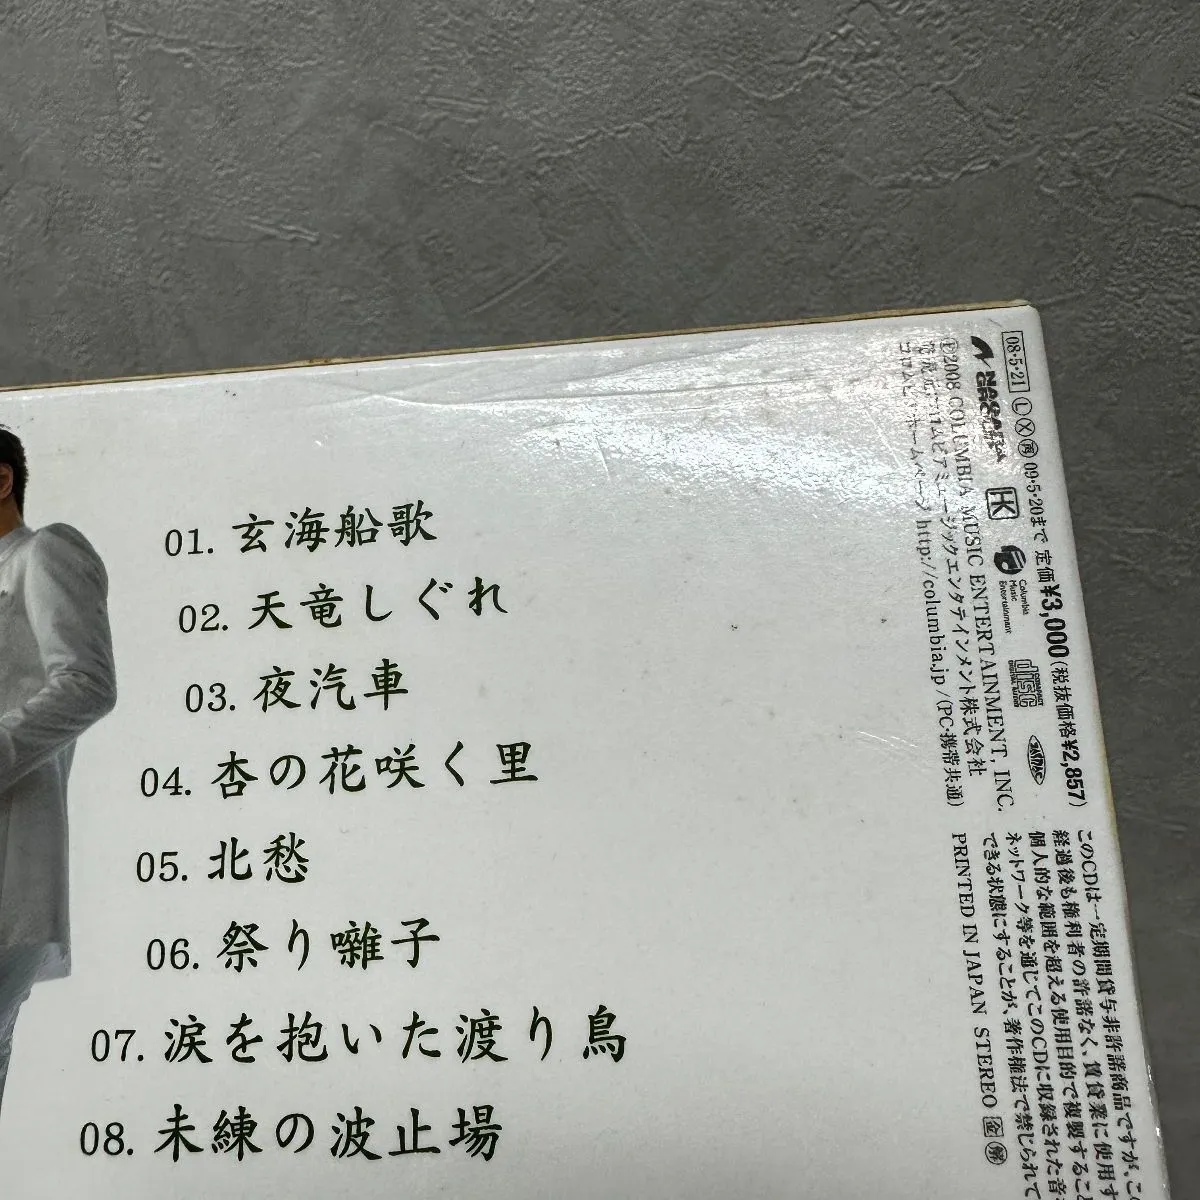 01. 玄海船歌
02. 天竜しぐれ
03. 夜汽車
04. 杏の花咲く里
05. 北愁
06. 祭り囃子
07. 涙を抱いた渡り鳥
08. 未練の波止場
08·5·21 Ⓛ Ⓧ 再 09·5·20まで 定価¥3,000(税抜価格¥2,857)
NAGARA GROUP
HK
Columbia
Music
Entertainment
COMPACT
disc
DIGITAL AUDIO
℗2008 COLUMBIA MUSIC ENTERTAINMENT, INC.
発売元:コロムビアミュージックエンタテインメント株式会社
コロムビア・ホームページ http://columbia.jp/(PC・携帯共通)
このCDは一定期間貸与非許諾商品ですが、こ
経過後も権利者の許諾なく、賃貸業に使用す
個人的な範囲を超える使用目的で複製すること
ネットワーク等を通じてこのCDに収録された音
できる状態にすることが、著作権法で禁じられて
PRINTED IN JAPAN STEREO